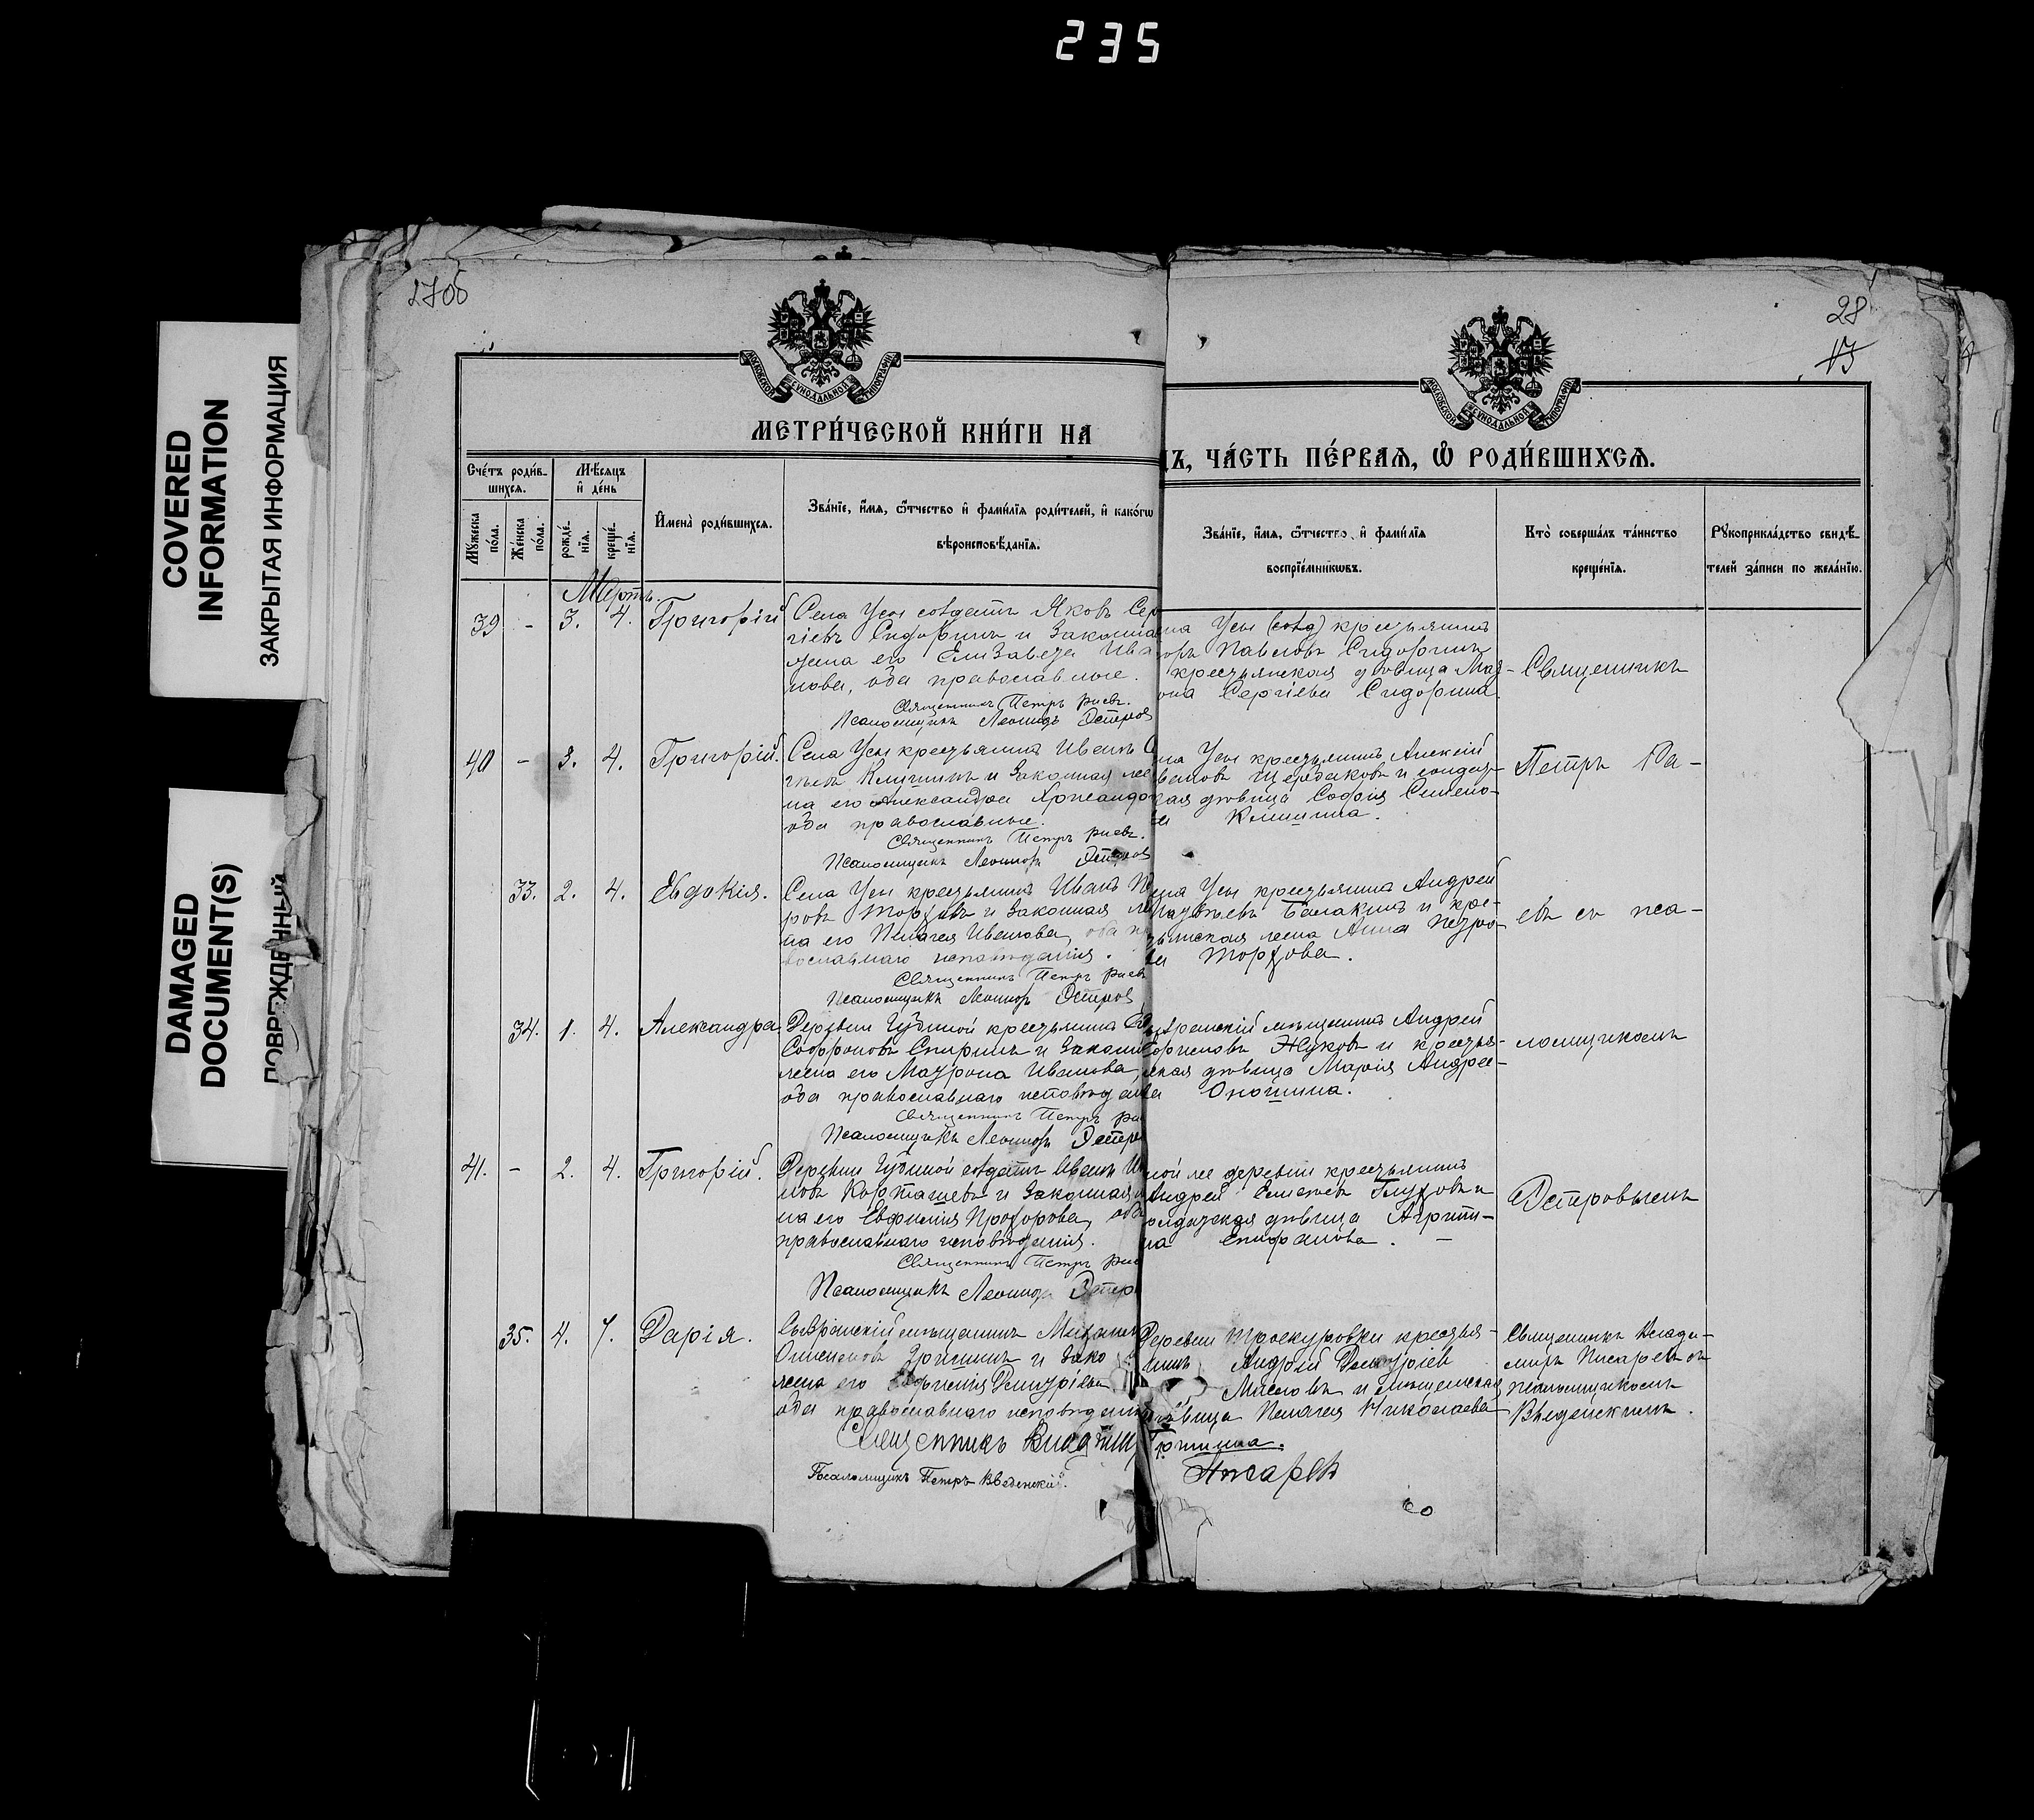 235
COVERED
INFORMATION
ЗАКРЫТАЯ ИНФОРМАЦИЯ
DAMAGED
DOCUMENT(S)
ПОВРЕЖДЕННЫЙ
27об
28
13
МОСКОВСКОЙ СѴНОДАЛЬНОЙ ТИПОГРАФІИ
МОСКОВСКОЙ СѴНОДАЛЬНОЙ ТИПОГРАФІИ
МЕТРИ́ЧЕСКОЙ КНИ́ГИ НА
ДЪ, ЧА́СТЬ ПЕ́РВАЯ, Ѡ РОДИ́ВШИХСЯ.
Сче́тъ роди́в-
шихся.
Мѣ́сяцъ
и҆ де́нь
Мꙋ́жеска
по́ла.
Же́нска
по́ла.
рожде́-
нїя.
креще́-
нїя.
И҆мена̀ роди́вшихся.
Зва́нїе, и҆́мя, ѻ҆́тчество и҆ фами́лїя роди́телей, и҆ како́гѡ
вѣроисповѣ́данїя.
Зва́нїе, и҆́мя, ѻ҆́тчество, и҆ фами́лїя
воспрїе́мникѡвъ.
Кто̀ соверша́лъ та́инство
креще́нїя.
Рꙋкоприкла́дство свидѣ́-
телей за́писи по жела́нїю.
Мартъ.
39 - 3. 4. Григорій
Села Усы солдатъ Яковъ Сер
гіевъ Сидоринъ и законна
жена его Елизавета Ива
нова, оба православные.
Священникъ Петръ
Псаломщикъ Леонидъ Остров
ла Усы (солд) крестьянинъ
оръ Павловъ Сидоринъ
крестьянская дѣвица Мат-
она Сергіева Сидорина
Священникъ
40 - 3. 4. Григорій.
Села Усы крестьянинъ Иванъ С
и законная же
на его Александра
оба православные.
Священникъ Петръ
Псаломщикъ Леонидъ Остров
ла Усы крестьянинъ Алексій
вановъ Щербаковъ и солдат-
кая дѣвица Софія Семено-
Петръ
33. 2. 4. Евдокія.
Села Усы крестьянинъ Иванъ П
ровъ Торховъ и законная же
на его Пелагея Иванова, оба пр
вославнаго исповѣданія.
Священникъ Петръ
Псаломщикъ Леонидъ Остров
ела Усы крестьянинъ Андрей
Балакинъ и кре-
стьянская жена Анна Петро-
ва Торхова.
евъ съ пса-
34. 1. 4. Александра
Деревни Губиной крестьянинъ
Софроновъ Спиринъ и законн
жена его Матрона Иванова,
оба православнаго исповѣдан
Священникъ Петръ
Псаломщикъ Леонидъ Остро
мѣщанинъ Андрей
Жуковъ и крестья-
нская дѣвица Марія Андрее-
ва
ломщикомъ
41. - 2. 4. Григорій.
Деревни Губиной солдатъ Иванъ И
новъ Карташевъ и законная
на его Евфимія Прохорова, оба
православнаго исповѣданія.
Священникъ Петръ
Псаломщикъ Леонидъ Остро
ной же деревни крестьянинъ
Андрей Глуховъ и
олдатская дѣвица Агрипи-
на Епифанова. -
Островымъ
35. 4. 7. Дарія.
Сызранскій мѣщанинъ Михаилъ
и зако
жена его Димитріева
оба православнаго исповѣдан
Священникъ Владими
Псаломщикъ Петръ Введенскій.
Деревни Троекуровки крестья-
нинъ Андрей Димитріевъ
Масловъ и мѣщанская
дѣвица Пелагея Николаева
Писарев
Священникъ Влади-
миръ Писаревъ съ
псаломщикомъ
Введенскимъ.